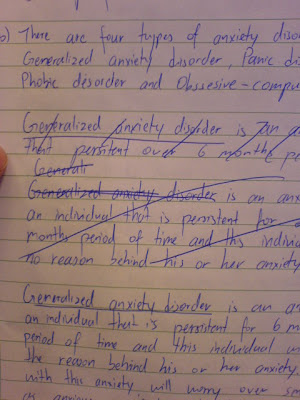 b) There are four types of anxiety diso
Generalized anxiety disorder, Panic di
Phobic desorder and Obssesive-compu
Generalized anxiety disorder is an a
that persitent over 6 months pe
Generali
Generalized anxiety disorder is an anx
an individual that is persistent for
months period of time and this individ
no reason behind his or her anxiety
Generalized anxiety disorder is an an
an individual that is persistent for 6 m
period of time and this individual w
the reason behind his or her anxiety.
with this anxiety will worry over se